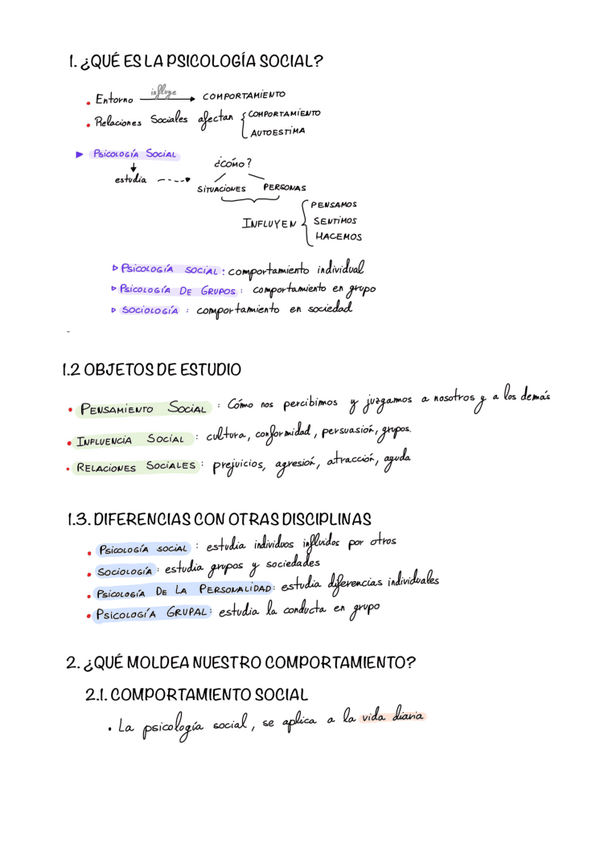 1. ¿QUÉ ES LA PSICOLOGÍA SOCIAL?
• Entorno influye → COMPORTAMIENTO
• Relaciones Sociales afectan { COMPORTAMIENTO
AUTOESTIMA
▶ PSICOLOGÍA SOCIAL
¿CÓMO?
estudia
SITUACIONES PERSONAS
PENSAMOS
INFLUYEN { SENTIMOS
HACEMOS
▷ PSICOLOGÍA SOCIAL: comportamiento individual
▷ PSICOLOGÍA DE GRUPOS: comportamiento en grupo
▷ SOCIOLOGÍA: comportamiento en sociedad
-
1.2 OBJETOS DE ESTUDIO
• PENSAMIENTO SOCIAL: Cómo nos percibimos y juzgamos a nosotros y a los demás
• INFLUENCIA SOCIAL: cultura, conformidad, persuasión, grupos.
• RELACIONES SOCIALES: prejuicios, agresión, atracción, ayuda
1.3. DIFERENCIAS CON OTRAS DISCIPLINAS
• PSICOLOGÍA SOCIAL: estudia individuos influidos por otros
• SOCIOLOGÍA: estudia grupos y sociedades
• PSICOLOGÍA DE LA PERSONALIDAD: estudia diferencias individuales
• PSICOLOGÍA GRUPAL: estudia la conducta en grupo
2. ¿QUÉ MOLDEA NUESTRO COMPORTAMIENTO?
2.1. COMPORTAMIENTO SOCIAL
• La psicología social, se aplica a la vida diaria